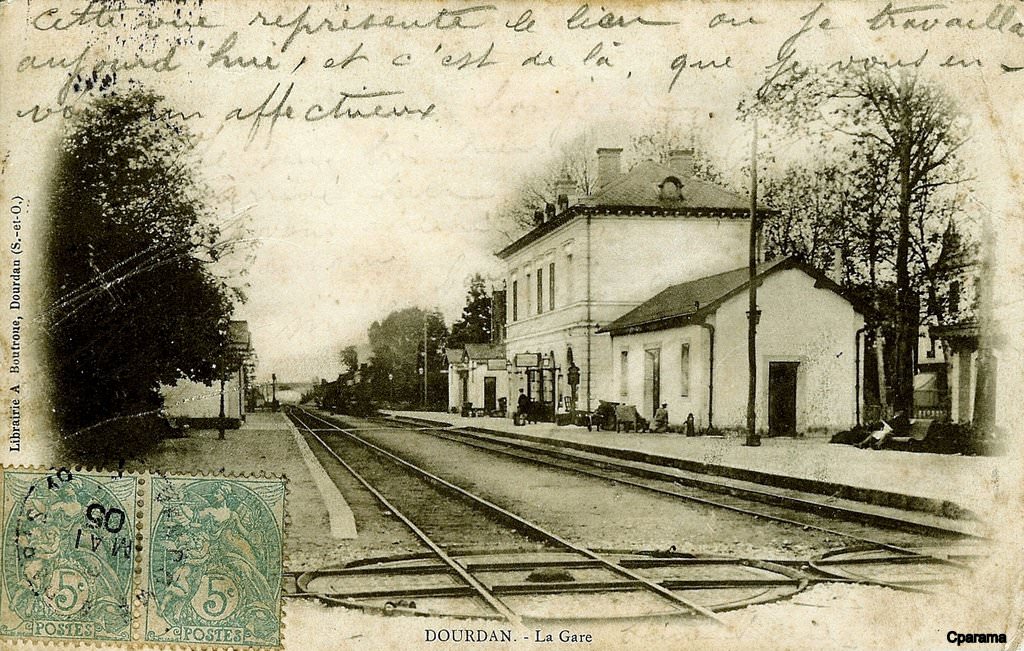 Cette vue représente le lieu ou je travaille
aujourd'hui, et c'est de là, que je vous en-
voi un affectueux
Librairie A Boutroue, Dourdan (S.-et-O.)
MAI
05
5c
POSTES
5c
POSTES
DOURDAN. - La Gare
Cparama